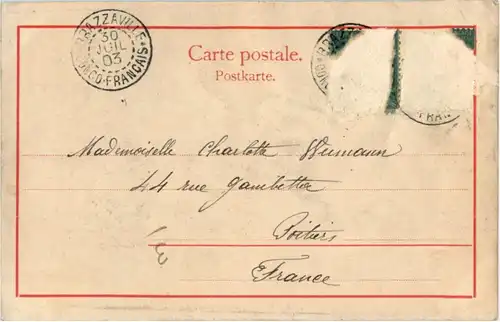 BRAZZAVILLE
30
JUIL
03
CONGO-FRANCAIS
Carte postale.
Postkarte.
Mademoiselle Charlotte
44 rue Gambetta
Poitiers
France